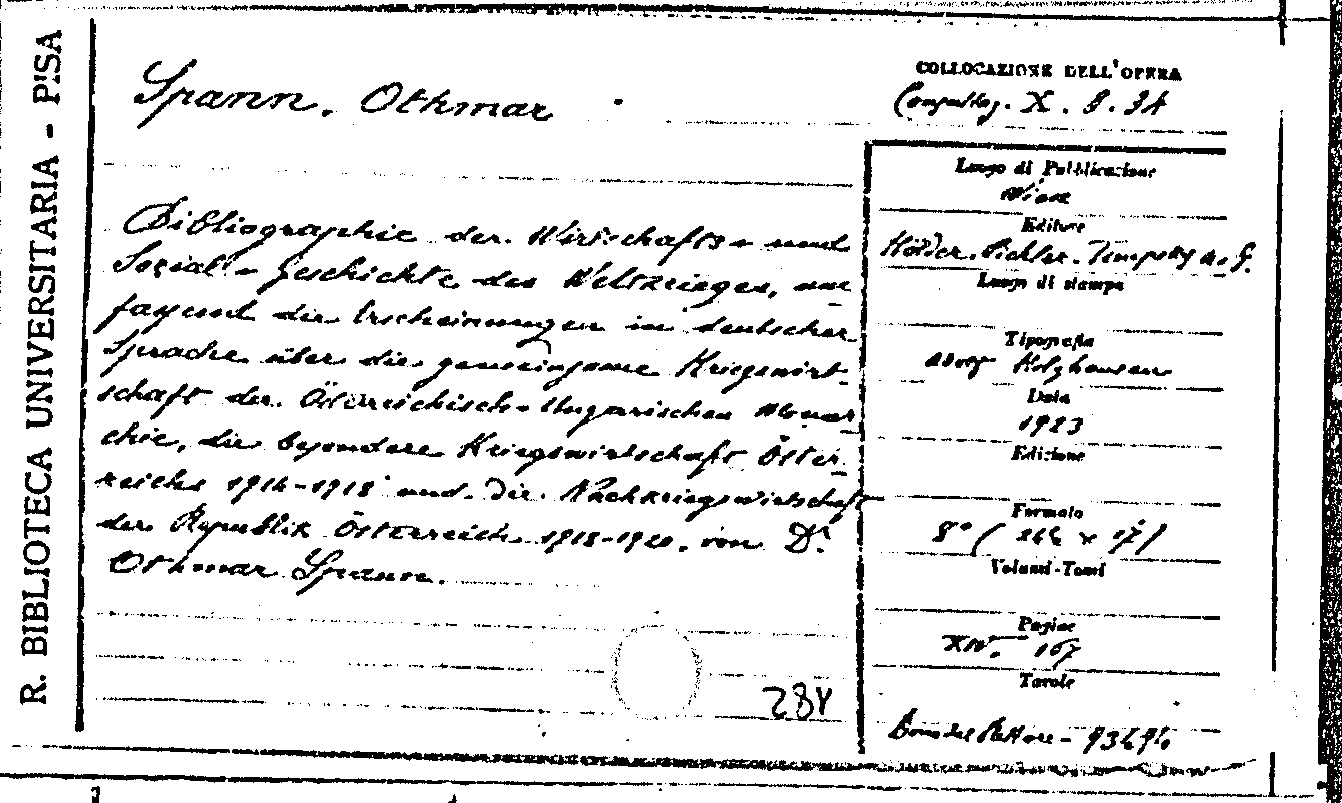 R. BIBLIOTECA UNIVERSITARIA - PISA
Spann, Othmar
COLLOCAZIONE DELL'OPERA
X. 8. 34
Bibliographie der Wirtschafts- und
Sozial-geschichte des Weltkrieges, um
fassend die Erscheinungen in deutscher
Sprache über die gemeinsame Kriegswirt-
schaft der Österreichisch-Ungarischen Monar
chie, die besondere Kriegswirtschaft Öster
reichs 1914-1918 und die Nachkriegswirtschaft
der Republik Österreich 1918-1920, von Dr.
Othmar Spann.
284
Luogo di Pubblicazione
Wien
Editore
Hölder. Pichler. Tempsky A. G.
Luogo di stampa
Tipografia
Adolf Holzhausen
Data
1923
Edizione
Formato
8° ( 17)
Volumi-Tomi
Pagine
XIV. 167
Tavole